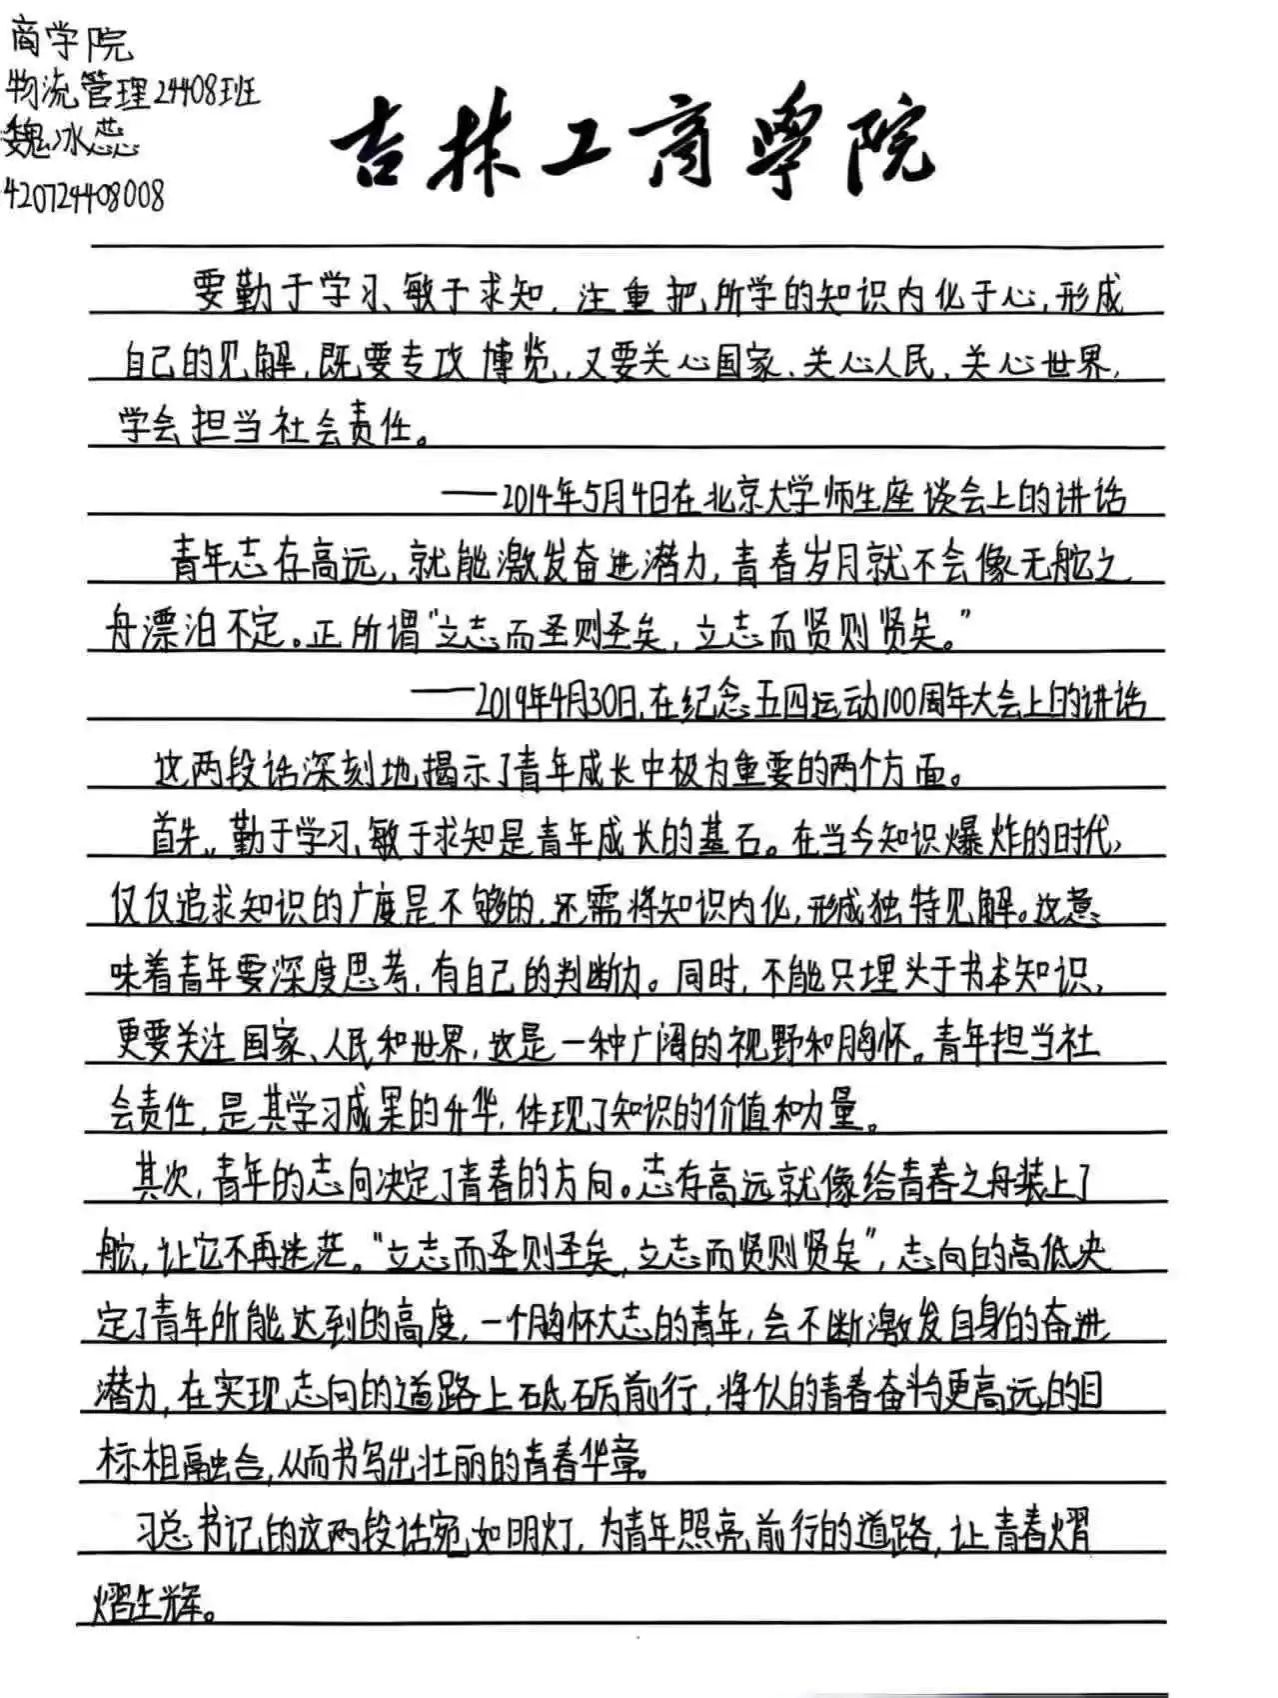 商学院
物流管理24408班
魏冰蕊
420724408008
吉林工商學院
要勤于学习、敏于求知,注重把所学的知识内化于心,形成
自己的见解,既要专攻博览,又要关心国家、关心人民、关心世界,
学会担当社会责任。
——2014年5月4日在北京大学师生座谈会上的讲话
青年志存高远,就能激发奋进潜力,青春岁月就不会像无舵之
舟漂泊不定。正所谓“立志而圣则圣矣,立志而贤则贤矣。”
——2019年4月30日,在纪念五四运动100周年大会上的讲话
这两段话深刻地揭示了青年成长中极为重要的两个方面。
首先,勤于学习、敏于求知是青年成长的基石。在当今知识爆炸的时代,
仅仅追求知识的广度是不够的,还需将知识内化,形成独特见解。这意
味着青年要深度思考,有自己的判断力。同时,不能只埋头于书本知识,
更要关注国家、人民和世界,这是一种广阔的视野和胸怀。青年担当社
会责任,是其学习成果的升华,体现了知识的价值和力量。
其次,青年的志向决定了青春的方向。志存高远就像给青春之舟装上了
舵,让它不再迷茫。“立志而圣则圣矣,立志而贤则贤矣”,志向的高低决
定了青年所能达到的高度,一个胸怀大志的青年,会不断激发自身的奋进
潜力,在实现志向的道路上砥砺前行,将似的青春奋斗与更高远的目
标相融合,从而书写出壮丽的青春华章。
习总书记的这两段话宛如明灯,为青年照亮前行的道路,让青春熠
熠生辉。